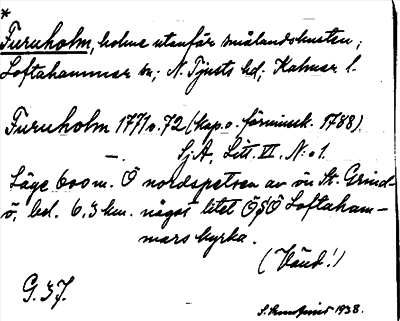 *
Furuholm, holme utanför smålandskusten;
Loftahammar sn; N. Tjusts hd; Kalmar l.
Furuholm 1771 o. 72 (kap. o. förminsk. 1788).
— SjA, Litt. VI, N:o 1.
Läge 600 m. Ö nordspetsen av ön St. Grind-
ö, bel. 6,3 km. något litet ÖSÖ Loftaham-
mars kyrka.
(Vänd!)
G. 37.
1938.